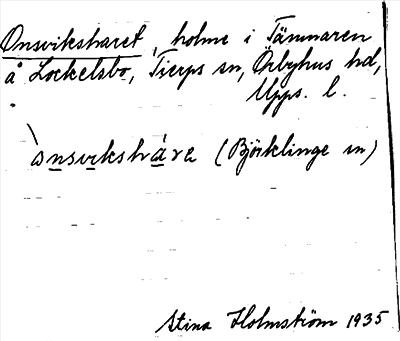 Onsviksharet, holme i Tämnaren
å Lockelsbo, Tierps sn, Örbyhus hd,
Upps. l.
ònsvikshára (Björklinge sn)
Stina Holmström 1935